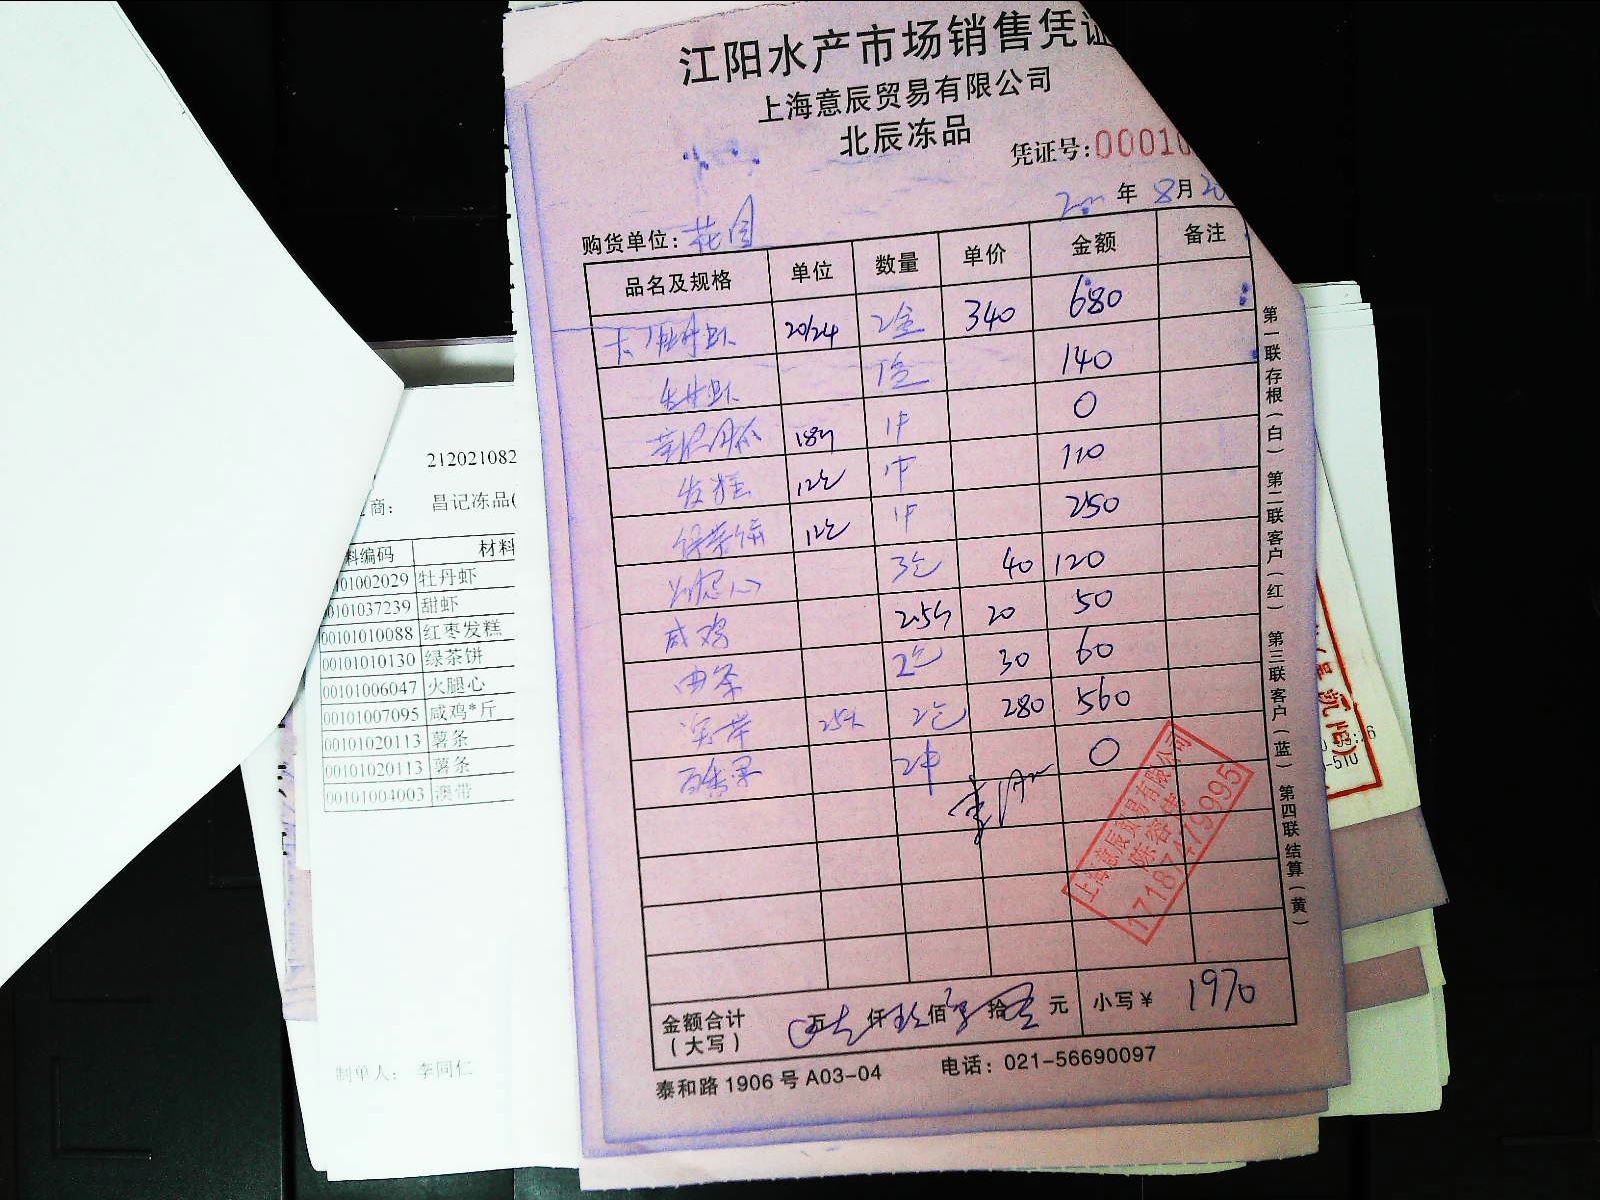 江阳水产市场销售凭证
上海意辰贸易有限公司
北辰冻品
凭证号:00010
年 8月20
购货单位: 花园
品名及规格 单位 数量 单价 金额 备注
牡丹虾 20/24 2盒 340 680
1盒 140
1件 0
发糕 12包 1件 110
绿茶饼 12包 1件 250
火腿心 3包 40 120
咸鸡 2.5斤 20 50
薯条 2包 30 60
2包 280 560
百香果 0
金额合计
(大写)
万 仟 玖 佰 拾 元 小写¥ 1970
泰和路1906号A03-04 电话: 021-56690097
第一联存根(白) 第二联客户(红) 第三联客户(蓝) 第四联结算(黄)
上海意辰贸易有限公司
17187479995
212021082
商: 昌记冻品(
料编码 材料
0101002029 牡丹虾
00101037239 甜虾
00101010088 红枣发糕
00101010130 绿茶饼
00101006047 火腿心
00101007095 咸鸡*斤
00101020113 薯条
00101020113 薯条
00101004003 澳带
制单人: 李同仁
-510